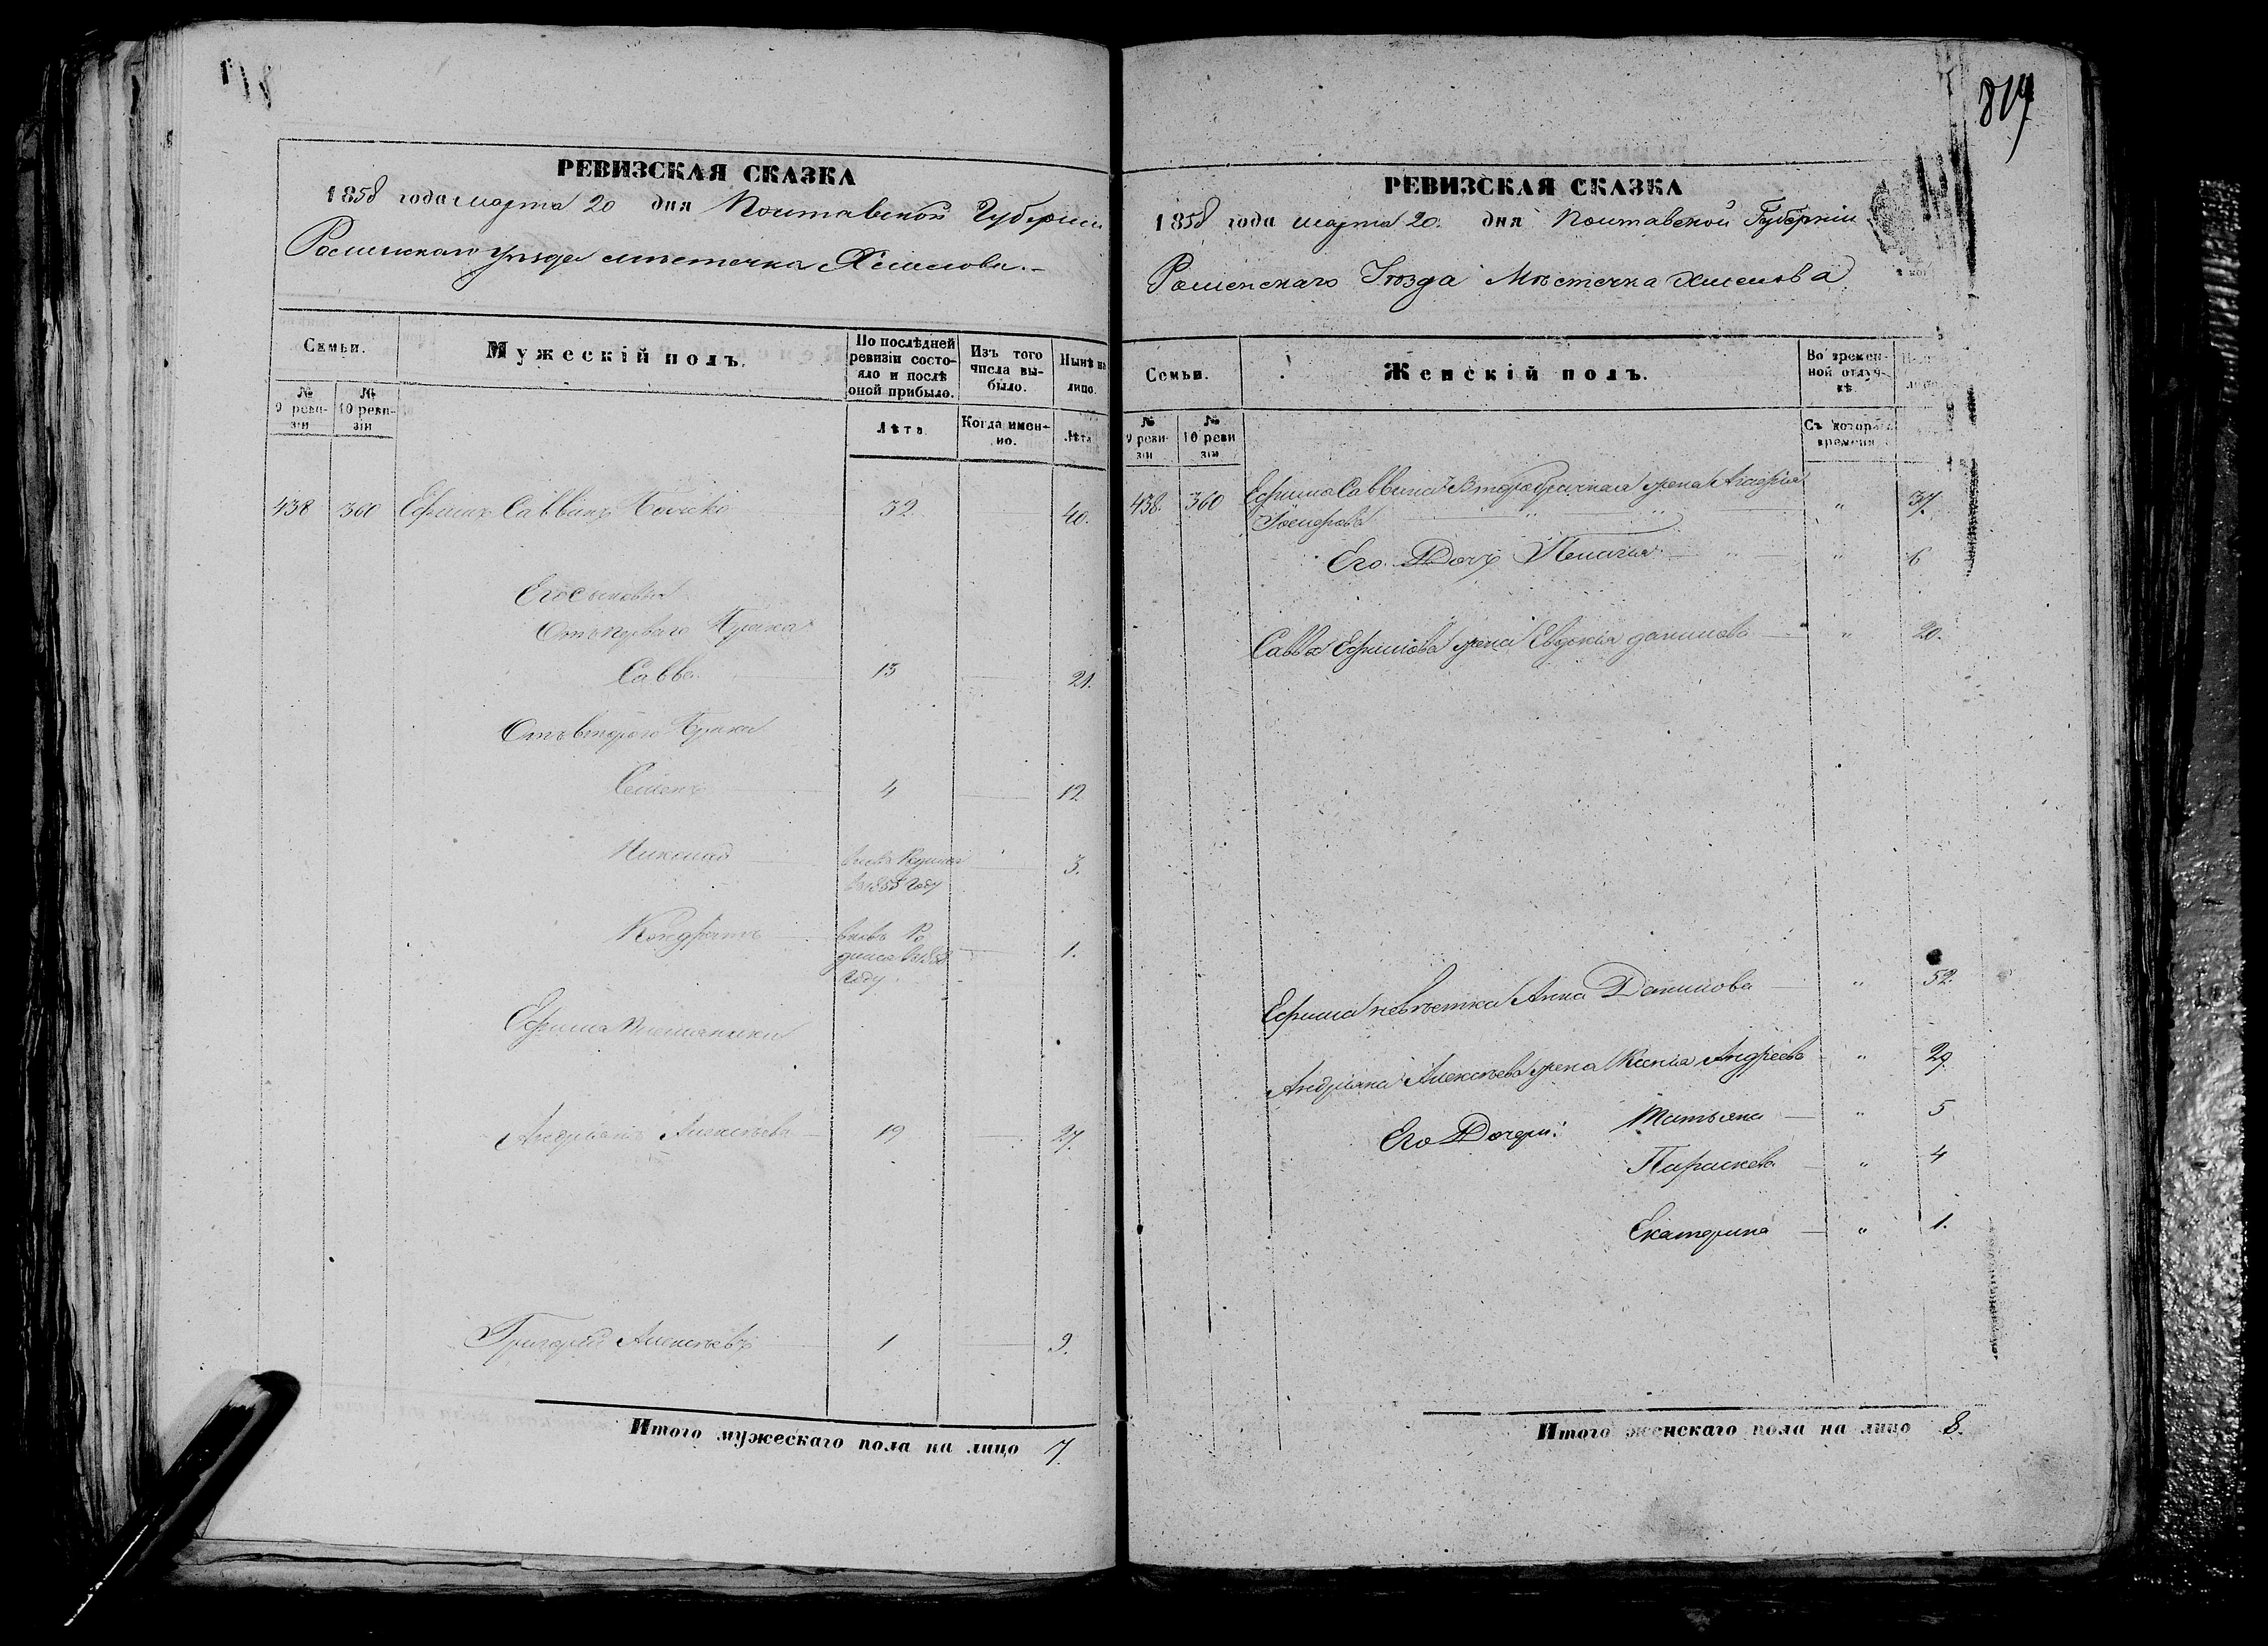 817
РЕВИЗСКАЯ СКАЗКА
1858 года марта 20 дня Полтавской Губерніи
Роменскаго уѣзда мѣстечка Хмелова.
Семьи.
Мужескій полъ.
По послѣдней ревизіи состояло и послѣ оной прибыло.
Изъ того числа выбыло.
Нынѣ на лицо.
№ 9 ревизіи
№ 10 ревизіи
Лѣта
Когда именно.
Лѣта
438 360 Ефимъ Саввинъ 32 40.
Его сыновья
Отъ перваго Брака
Савва 13 21.
Отъ втораго Брака
Семенъ 4 12
Николай вновь Родился 3.
въ 1855 Году
Кондратъ вновь Ро 1.
дился въ
Году
Ефима Племянники
Андріянъ Алексѣевъ 19 27.
Григорій Алексѣевъ 1 9.
Итого мужескаго пола на лицо 7.
РЕВИЗСКАЯ СКАЗКА
1858 года марта 20. дня Полтавской Губерніи
Роменскаго Уѣзда Мѣстечка Хмелова
Семьи.
Женскій полъ.
Во времен-
ной отлуч-
кѣ.
№ 9 ревизіи
№ 10 ревизіи
Съ котораго
времени
438. 360 Ефима Саввина Второбрачная жена Агафія " 37.
Его Дочь Пелагия " 6
Савва Ефимова жена Евдокія Данилова " 20.
Ефима невѣстка Анна Данилова " 52.
Андріяна Алексѣева жена Ксенія Андреева " 29.
Его Дочери: Татьяна " 5
Параскева " 4
Екатерина " 1.
Итого женскаго пола на лицо 8.